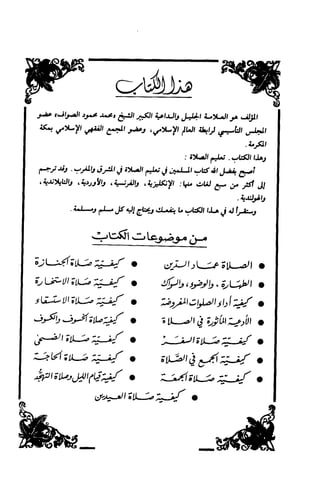 هذا الكتاب
المؤلف هو العلامة الجليل والداعية الكبير الشيخ «محمد محمود الصواف» عضو
المجلس التأسيسي لرابطة العالم الإسلامي، وعضو المجمع الفقهي الإسلامي بمكة
المكرمة.
وهذا الكتاب. تعليم الصلاة :
أصبح بفضل الله كتاب المسلمين في تعليم الصلاة في المشرق والمغرب. وقد ترجم
إلى أكثر من سبع لغات منها: الإنكليزية، والفرنسية، والأوردية، والتايلاندية،
والهولندية.
وستقرأ له في هذا الكتاب ما ينفعك ويحتاج إليه كل مسلم ومسلمة.
من موضوعات الكتاب
• الصلاة عماد الدين
• الطهارة، والوضوء، والسواك
• كيفية أداء الصلوات المفروضة
• الأدعية المأثورة في الصلاة
• كيفية صلاة السفر
• كيفية الجمع في الصلاة
• كيفية صلاة الجمعة
• كيفية صلاة الجنازة
• كيفية صلاة الاستخارة
• كيفية صلاة الاستسقاء
• كيفية صلاة الخسوف والكسوف
• كيفية صلاة الضحى
• كيفية صلاة الحاجة
• كيفية قيام الليل وصلاة التهجد
• كيفية صلاة العيدين